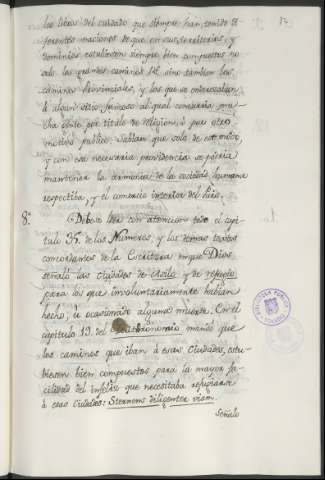 17
las ideas del cuidado que siempre han tenido di-
ferentes naciones de que en sus territorios, y
dominios estubiesen siempre bien compuestos no
solo los grandes caminos Rs. sino tambien los
caminos Provinciales, y los que se enderezaban
à algun sitio famoso al qual concurria mu-
cha gente por titulo de religion, ò por otro
motivo publico. Sabian que solo de este modo,
y con esa necesaria providencia se podria
mantener la armonia de la sociedad humana
respectiva, y el comercio interior del Pais.
8.º Debese leer con atencion todo el capi-
tulo 35. de los Numeros, y los demas textos
concordantes de la Escritura en que Dios
señaló las Ciudades de Asilo y de refugio
para los que involuntariamente habian
hecho, u ocasionado alguna muerte. En el
capitulo 19. del Deuteronomio mandó que
los caminos que iban à esas Ciudades, estu-
biesen bien compuestos para la mayor fa-
cilidad del infeliz que necesitaba refugiarse
à esas Ciudades: Sternens diligenter viam.
Señaló